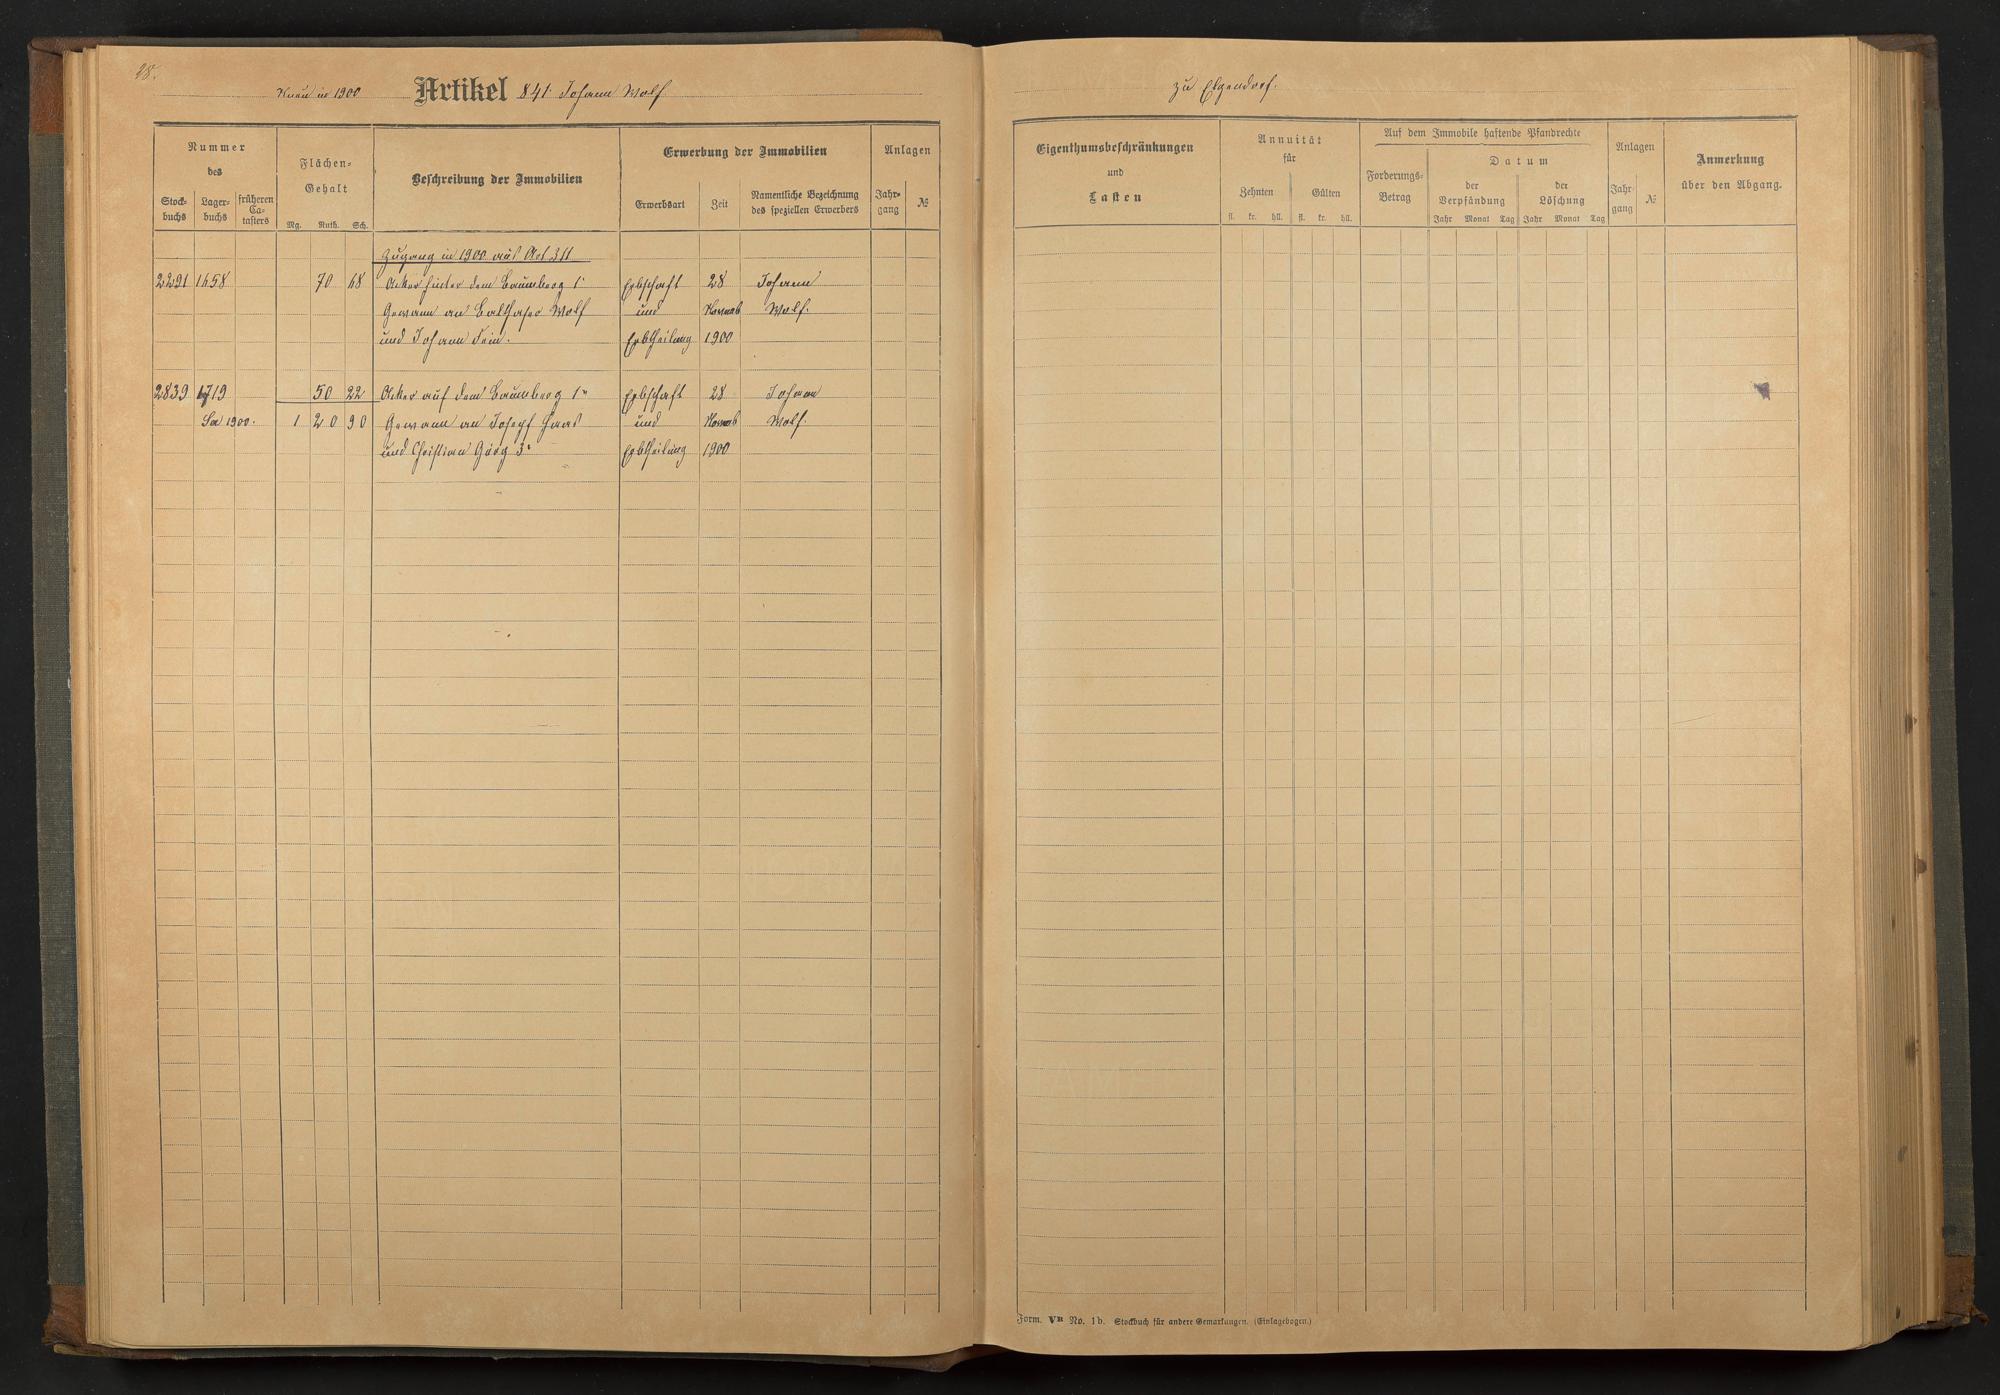 28.
Neu in 1900 Artikel 841. Johann Wolf
zu Elgendorf.
Nummer
des
Stock-
buchs
Lager-
buchs
früheren
Ca-
tasters
Flächen-
Gehalt
Mg. Ruth. Sch.
Beschreibung der Immobilien
Erwerbung der Immobilien
Erwerbsart
Zeit
Namentliche Bezeichnung
des speziellen Erwerbers
Anlagen
Jahr-
gang
№
Eigenthumsbeschränkungen
und
Lasten
Annuität
für
Zehnten
Gülten
fl. kr. hll. fl. kr. hll.
Auf dem Immobile haftende Pfandrechte
Forderungs-
Betrag
Datum
der
Verpfändung
der
Löschung
Jahr Monat Tag Jahr Monat Tag
Anlagen
Jahr-
gang
№
Anmerkung
über den Abgang.
Zugang in 1900 aus Art 311
2291 1658 70 68 Acker hinter dem Baumberg 1r Erbschaft 28 Johann
Gewann an Balthaser Wolf und Novemb Wolf.
und Johann Fein. Erbtheilung 1900
2839 1719 50 22 Acker auf dem Baumberg 1r Erbschaft 28 Johann
Sa 1900. 1 20 90 Gewann an Joseph Haas und Novemb Wolf.
und Christian Görg 3r Erbtheilung 1900
Form. VB No. 1b. Stockbuch für andere Gemarkungen. (Einlagebogen.)